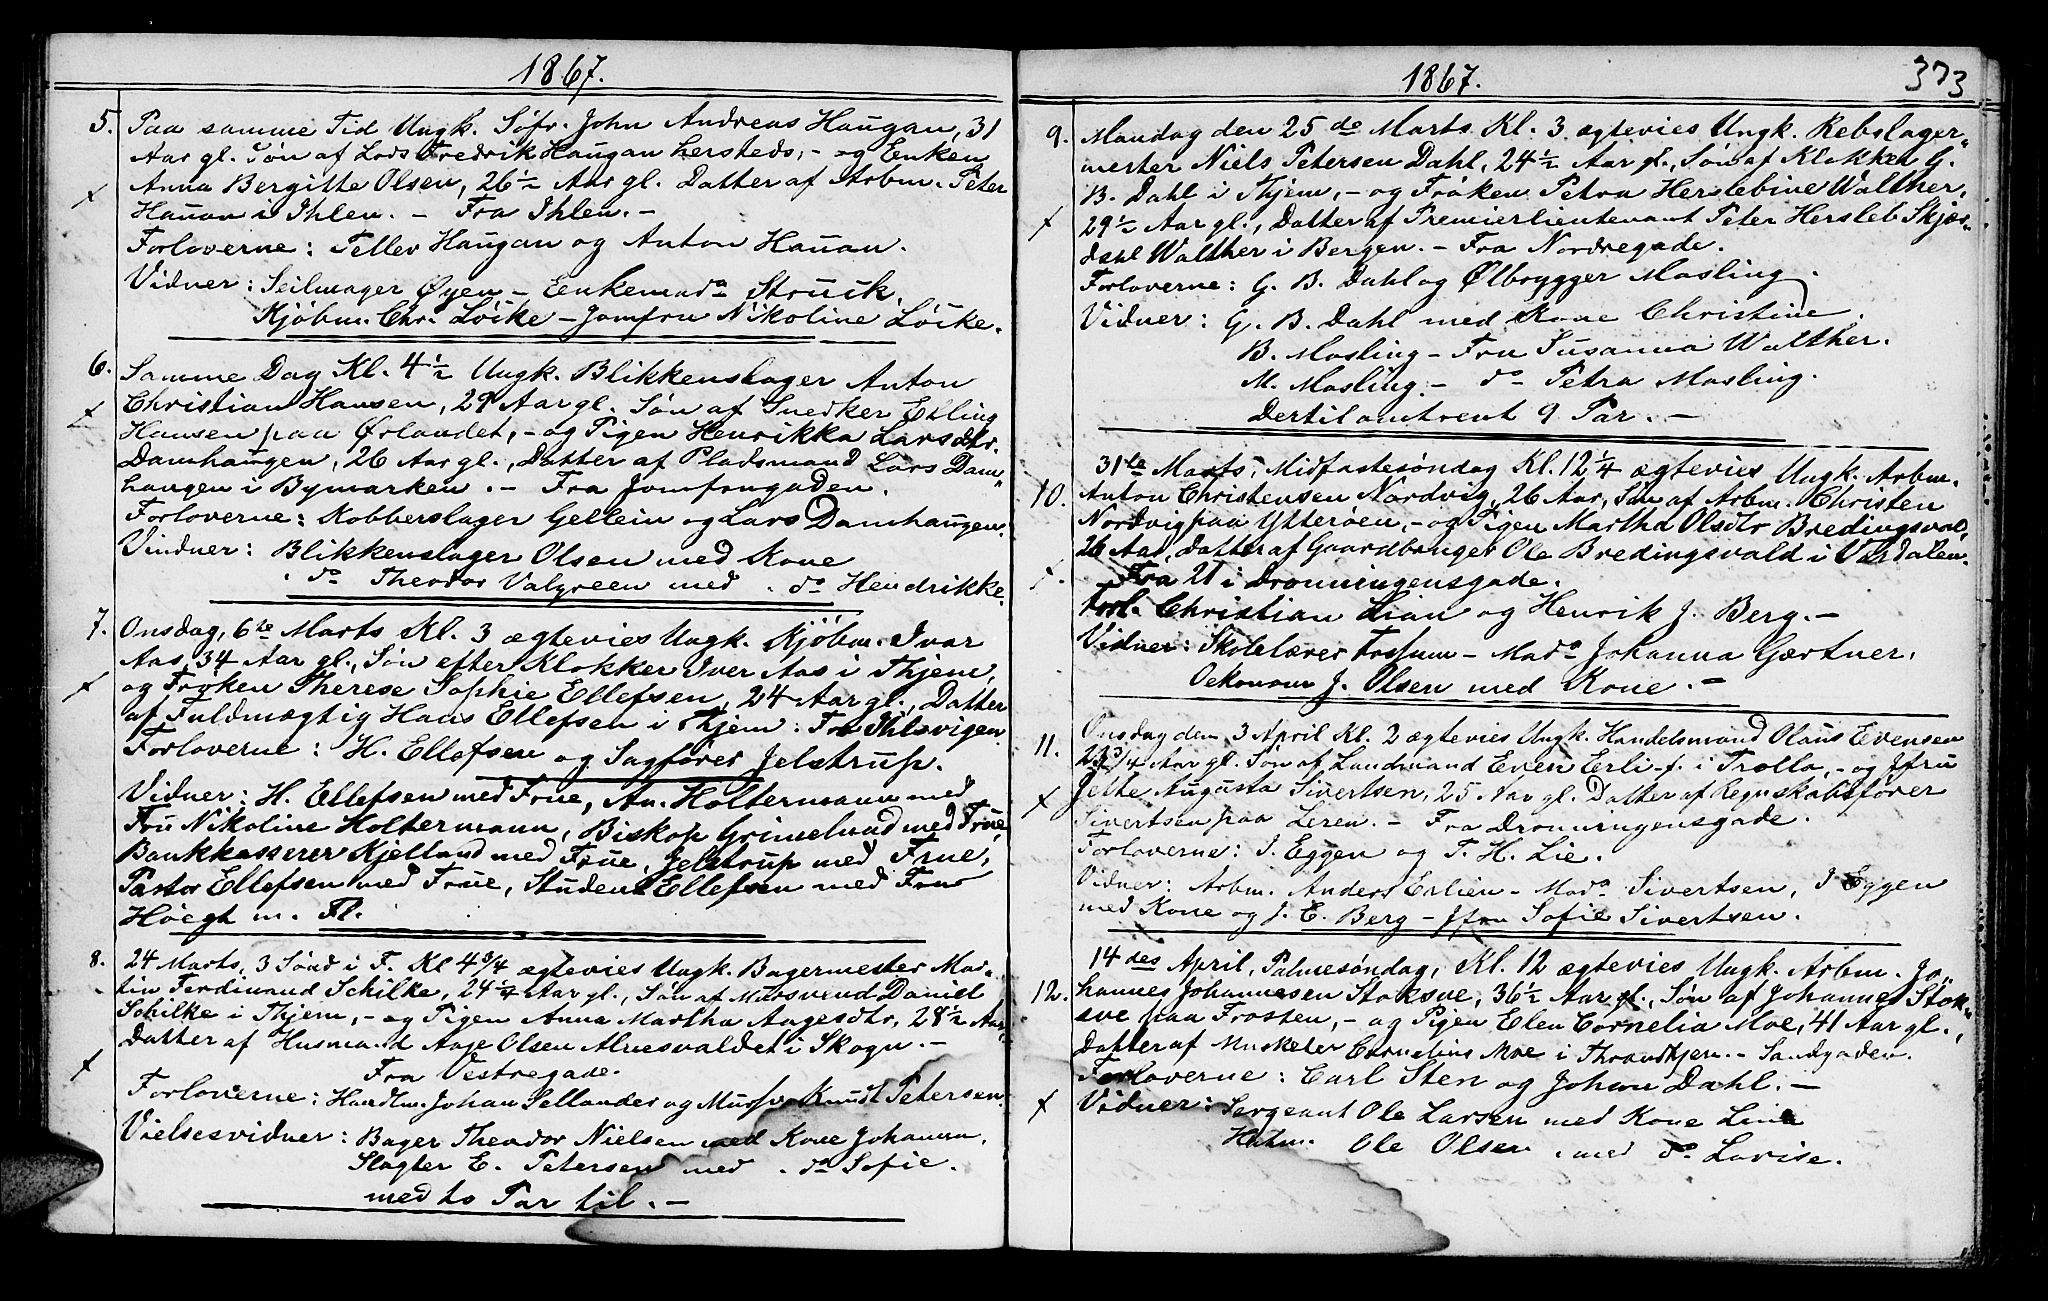 1867.
5. Paa samme Tid Ungk. Søfr. John Andreas Haugan, 31
Aar gl. Søn af Lods Fredrik Haugan hersteds, - og Enken
Anna Bergitte Olsen, 26½ Aar gl. Datter af Arbm. Peter
Hauan i Ihlen. - Fra Ihlen. -
Forloverne: Tellev Haugan og Anton Hauan.
Vidner: Seilmager Øyen - Eenkemada Struck.
Kjøbm. Chr. Løcke - Jomfru Nikoline Løcke.
6. Samme Dag Kl. 4½ Ungk. Blikkenslager Anton
Christian Hansen, 29 Aar gl. Søn af Snedker Elling
Hansen paa Ørlandet, - og Pigen Henrikka Larsdtr.
Damhaugen, 26 Aar gl., Datter af Pladsmand Lars Dam„
haugen i Bymarken. - Fra Jomfrugaden.
Forloverne: Kobberslager Gellein og Lars Damhaugen.
Vindner: Blikkenslager Olsen med Kone
do Theodor Valgreen med do Hendrikke.
7. Onsdag, 6te Marts Kl. 3 ægtevies Ungk. Kjøbm. Ivar
Aas, 34 Aar gl., Søn efter Klokker Iver Aas i Thjem,
og Frøken Therese Sophie Ellefsen, 24 Aar gl., Datter
af Fuldmægtig Hans Ellefsen i Thjem: Fra Ihlsvigen.
Forloverne: H. Ellefsen og Sagfører Jelstrup.
Vidner: H. Ellefsen med Frue, An. Holtermann med
Fru Nikoline Holtermann, Biskop Grimelund med Frue,
Bankkasserer Kjelland med Frue, Jelstrup med Frue,
Pastor Ellefsen med Frue, Student Ellefsen med Frue
Høegh m. Fl.
8. 24 Marts, 3 Sønd i F. Kl 4¾ ægtevies Ungk. Bagermester Mar„
tin Ferdinand Schilke, 24¼ Aar gl., Søn af Mursvend Daniel
Schilke i Thjem, - og Pigen Anna Martha Aagesdtr, 28½ Aar
Datter af Husmand Aage Olsen Alnesvaldet i Skogn. -
Fra Vestregade.
Forloverne: Handlm. Johan Sellander og Mursv. Knudt Petersen.
Vielsesvidner: Bager Theodor Nielsen med Kone Johanna,
Slagter E. Petersen med do Sofie.
med to Par til. -
1867.
373
9. Mandag den 25de Marts Kl. 3 ægtevies Ungk. Rebslager„
mester Niels Petersen Dahl, 24½ Aar gl., Søn af Klokker G.
B. Dahl i Thjem, - og Frøken Petra Herslebine Walther,
29½ Aar gl., Datter af Premierlieutenant Peter Hersleb Skjær„
dahl Walther i Bergen. - Fra Nordregade.
Forloverne: G. B. Dahl og Ølbrygger Masling.
Vidner: G. B. Dahl med Kone Christine.
B. Masling - Fru Susanna Walther.
M. Masling - do Petra Masling.
Dertil omtrent 9 Par. -
10. 31te Marts, Midfastesøndag Kl. 12¼ ægtevies Ungk. Arbm.
Anton Christensen Nordvig, 26 Aar, Søn af Arbm. Christen
Nordvig paa Ytterøen, - og Pigen Martha Olsdtr Bredingsval,
26 Aar, Datter af Gaardbruger Ole Bredingsvald i Værdalen.
Fra 21 i Dronningensgade.
Forl. Christian Lian og Henrik J. Berg. -
Vidner: Skolelærer Fossum - Mada Johanna Gærtner.
Oekonom J. Olsen med Kone. -
11. Onsdag den 3 April Kl. 2 ægtevies Ungk. Handelsmand Olaus Evensen
23¾ Aar gl. Søn af Landmand Even Erli i Trolla, - og Jfru
Jette Augusta Sivertsen, 25 Aar gl. Datter af Regnskabsfører
Sivertsen paa Leren. - Fra Dronningensgade.
Forloverne: I. Eggen og T. H. Lie.
Vidner: Arbm. Anders Erlien - Mada Sivertsen, I Eggen
med Kone og J. E. Berg - Jfru Sofie Sivertsen.
12. 14des April, Palmesøndag, Kl. 12 ægtevies Ungk. Arbm. Jo„
hannes Johannesen Stoksve, 36½ Aar gl., Søn af Johannes Stok„
sve paa Frosten, - og Pigen Elen Cornelia Moe, 41 Aar gl.,
Datter af Musketer Cornelius Moe i Throndhjem. - Sandgaden.
Forloverne: Carl Sten og Johan Dahl. -
Vidner: Sergeant Ole Larsen med Kone Lina
Ole Olsen med do Lovise.